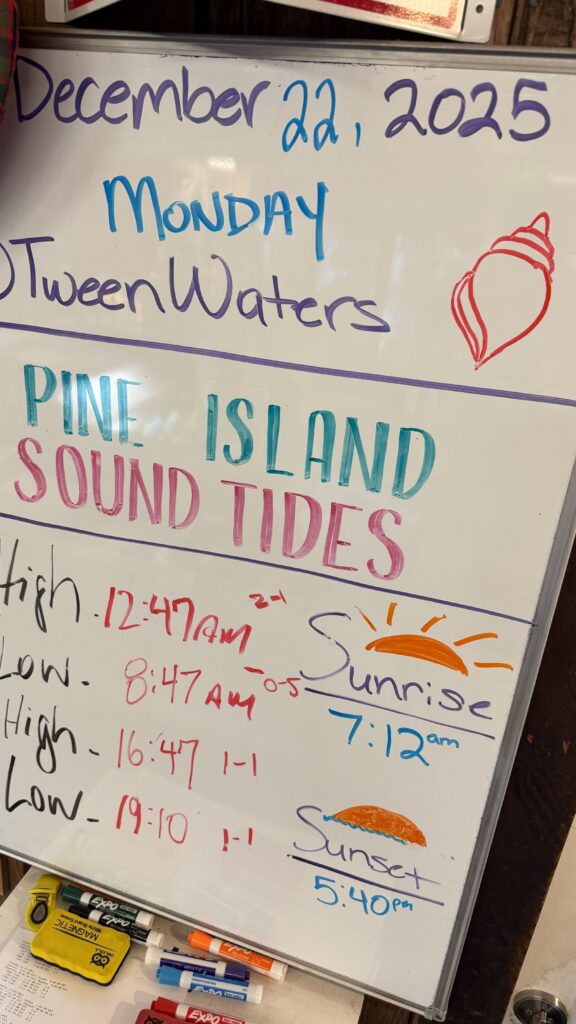 December 22, 2025
MONDAY
@TweenWaters
PINE ISLAND
SOUND TIDES
High - 12:47 AM 2-1
Low - 8:47 AM -0-5
High - 16:47 1-1
Low - 19:10 1-1
Sunrise
7:12 am
Sunset
5:40 pm
MAGNETIC
EXPO
EXPO
EXPO
EXPO